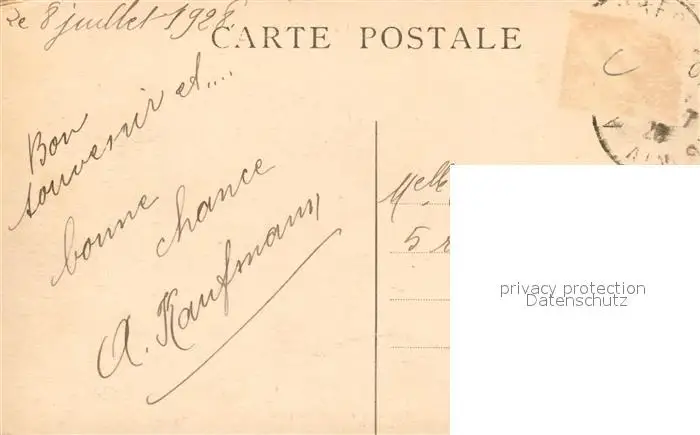 Le 8 juillet 1928
CARTE POSTALE
Bon
souvenir et....
bonne
chance
A. Kaufmann
Melle
5 r
privacy protection
Datenschutz